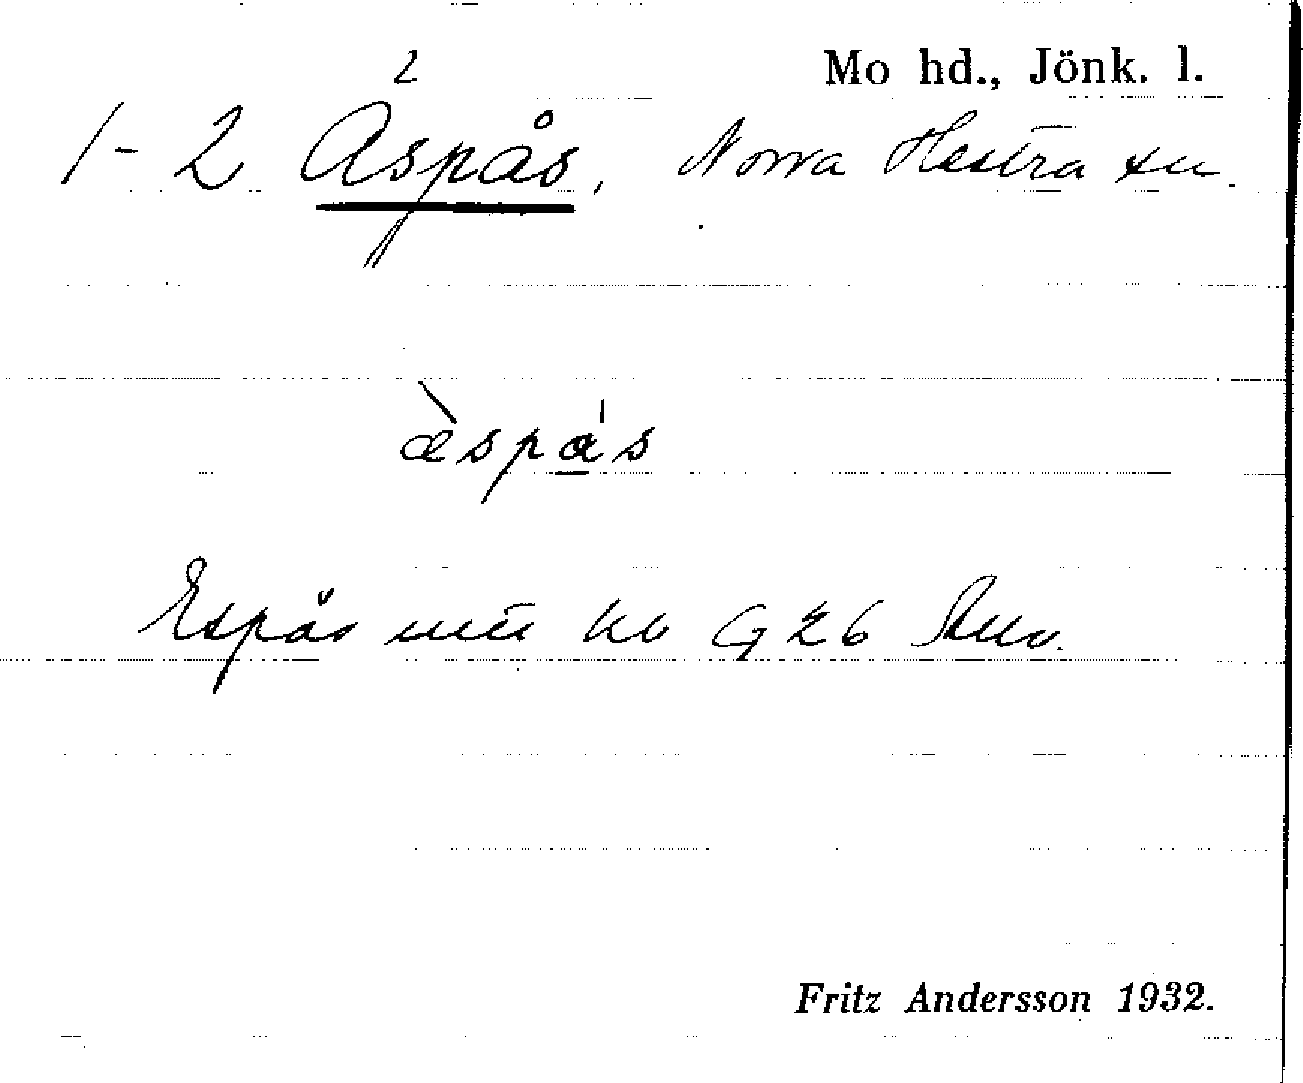 2
Mo hd., Jönk. l.
1-2 Aspås, Norra Hestra sn.
æ̀spås
Espås
G 26
Fritz Andersson 1932.